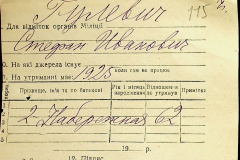 Гулевич 115
Для відміток органів Міліції
Стефан Иванович
0. На які джерела існує
На утриманні 1935 коли сам не працює
Прізвище, ім'я та по батькові
Рік і місяць народження
Відношення
Примітки
2 Набережная 62
19 р.
12. Підпис